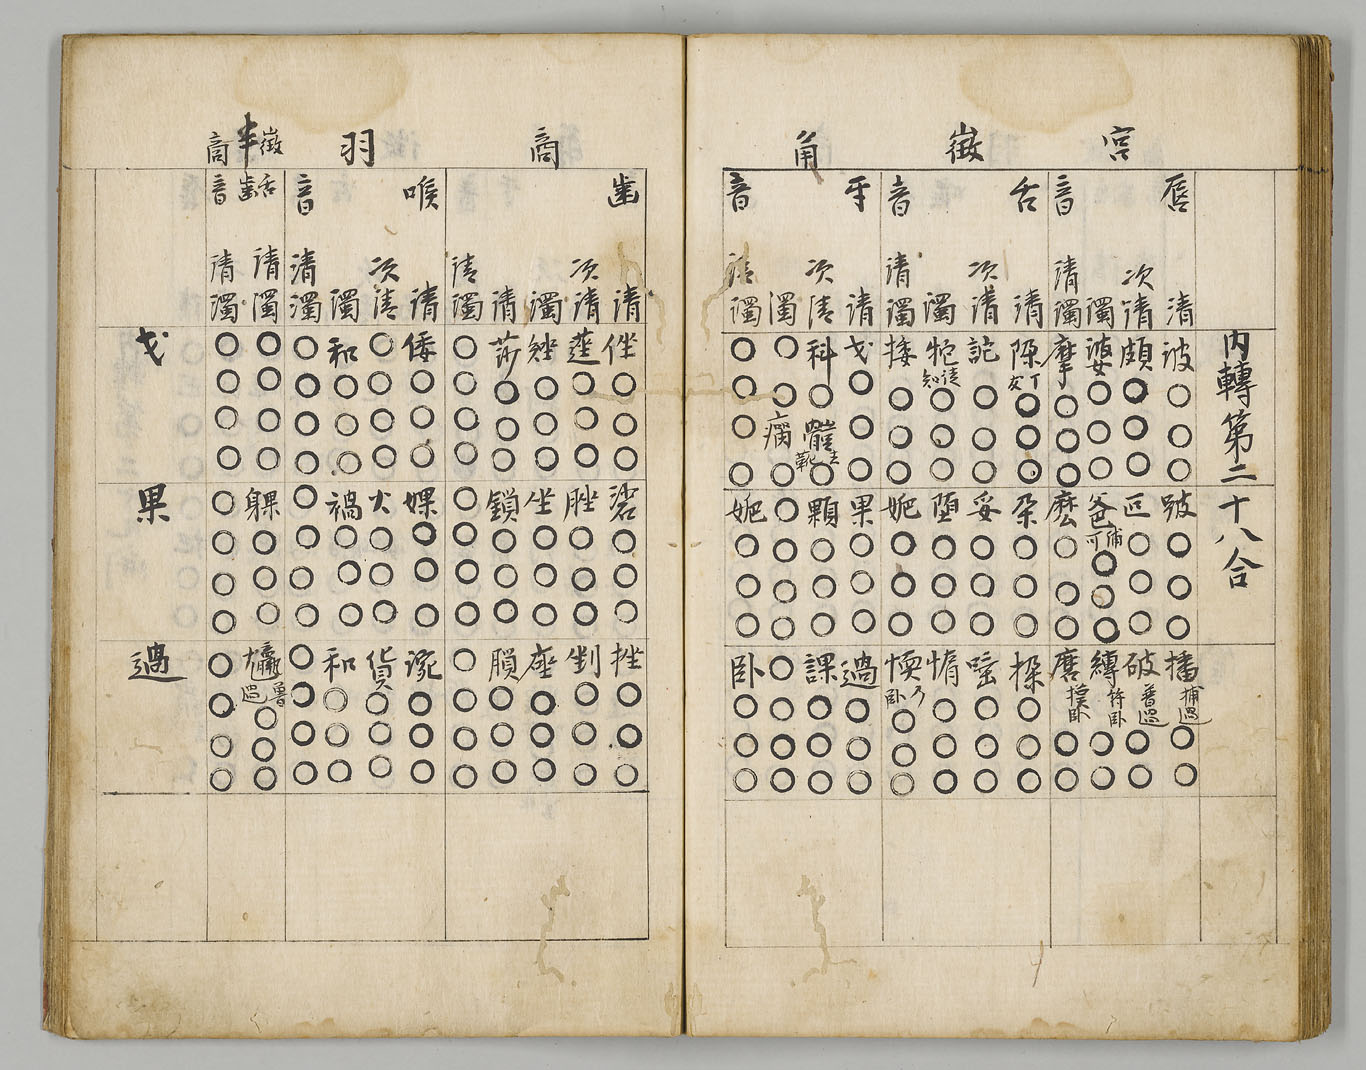 內轉第二十八合
宮 徵 角
脣音 舌音 牙音
清 次清 濁 清濁 清 次清 濁 清濁 清 次清 濁 清濁
波 頗 婆 摩 陊 詑 㸰 捼 戈 科 ○ ○
丁戈 徒和
○ ○ ○ ○ ○ ○ ○ ○ ○ ○ ○ ○
○ ○ ○ ○ ○ ○ ○ ○ ○ ○ ○
瘸
○ ○ ○ ○ ○ ○ ○ ○ ○ ○ ○ ○
跛 叵 爸 麼 朶 妥 墮 妮 果 顆 ○ 妮
捕可
○ ○ ○ ○ ○ ○ ○ ○ ○ ○ ○ ○
○ ○ ○ ○ ○ ○ ○ ○ ○ ○ ○ ○
○ ○ ○ ○ ○ ○ ○ ○ ○ ○ ○ ○
播 破 縛 磨 操 唾 惰 愞 過 課 ○ 臥
補過 普過 符臥 摸臥 乃臥
○ ○ ○ ○ ○ ○ ○ ○
○ ○ ○ ○ ○ ○ ○ ○ ○ ○ ○ ○
○ ○ ○ ○ ○ ○ ○ ○ ○ ○ ○ ○
商 羽 半徵 商
齒 喉音 舌齒音
清 次清 濁 清 清濁 清 次清 濁 清濁 清濁 清濁
㑅 莝 矬 莎 ○ 倭 ○ 和 ○ ○ ○ 戈
○ ○ ○ ○ ○ ○ ○ ○ ○ ○ ○
○ ○ ○ ○ ○ ○ ○ ○ ○ ○ ○
○ ○ ○ ○ ○ ○ ○ ○ ○ ○ ○
硰 脞 坐 鎖 ○ 婐 火 禍 ○ 躶 ○ 果
○ ○ ○ ○ ○ ○ ○ ○ ○ ○ ○
○ ○ ○ ○ ○ ○ ○ ○ ○ ○ ○
○ ○ ○ ○ ○ ○ ○ ○ ○ ○ ○
挫 剉 座 膹 ○ 涴 貨 和 ○ ○ 過
魯過
○ ○ ○ ○ ○ ○ ○ ○ ○ ○ ○
○ ○ ○ ○ ○ ○ ○ ○ ○ ○ ○
○ ○ ○ ○ ○ ○ ○ ○ ○ ○ ○